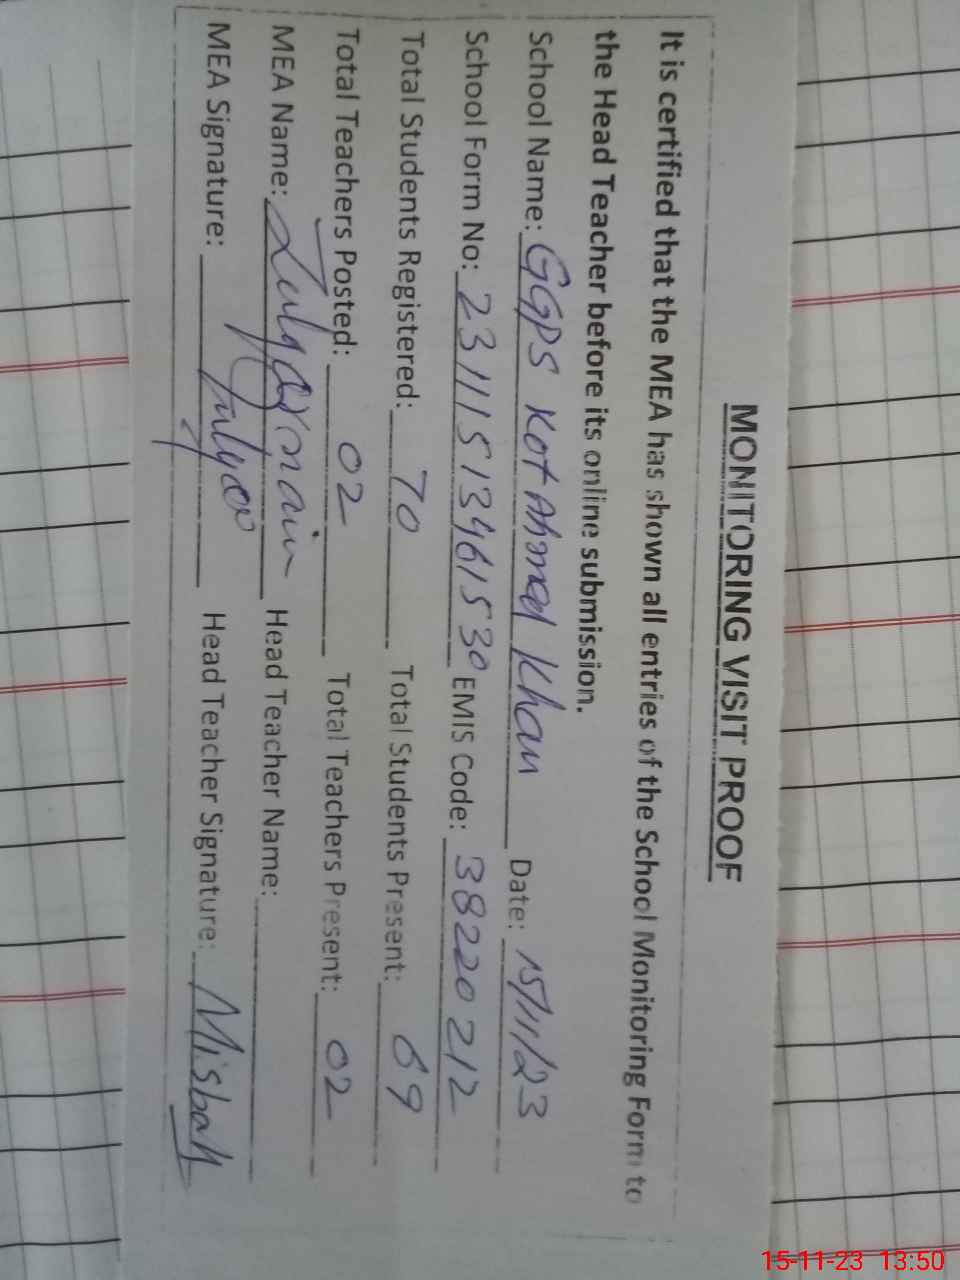 MONITORING VISIT PROOF
It is certified that the MEA has shown all entries of the School Monitoring Form to
the Head Teacher before its online submission.
School Name: GGPS Kot Ahmed Khan Date: 15/11/23
School Form No: 23111513461530 EMIS Code: 38220212
Total Students Registered: 70 Total Students Present: 69
Total Teachers Posted: 02 Total Teachers Present: 02
MEA Name: Zulqarnain Head Teacher Name:
MEA Signature: Head Teacher Signature: Misbah
15-11-23 13:50